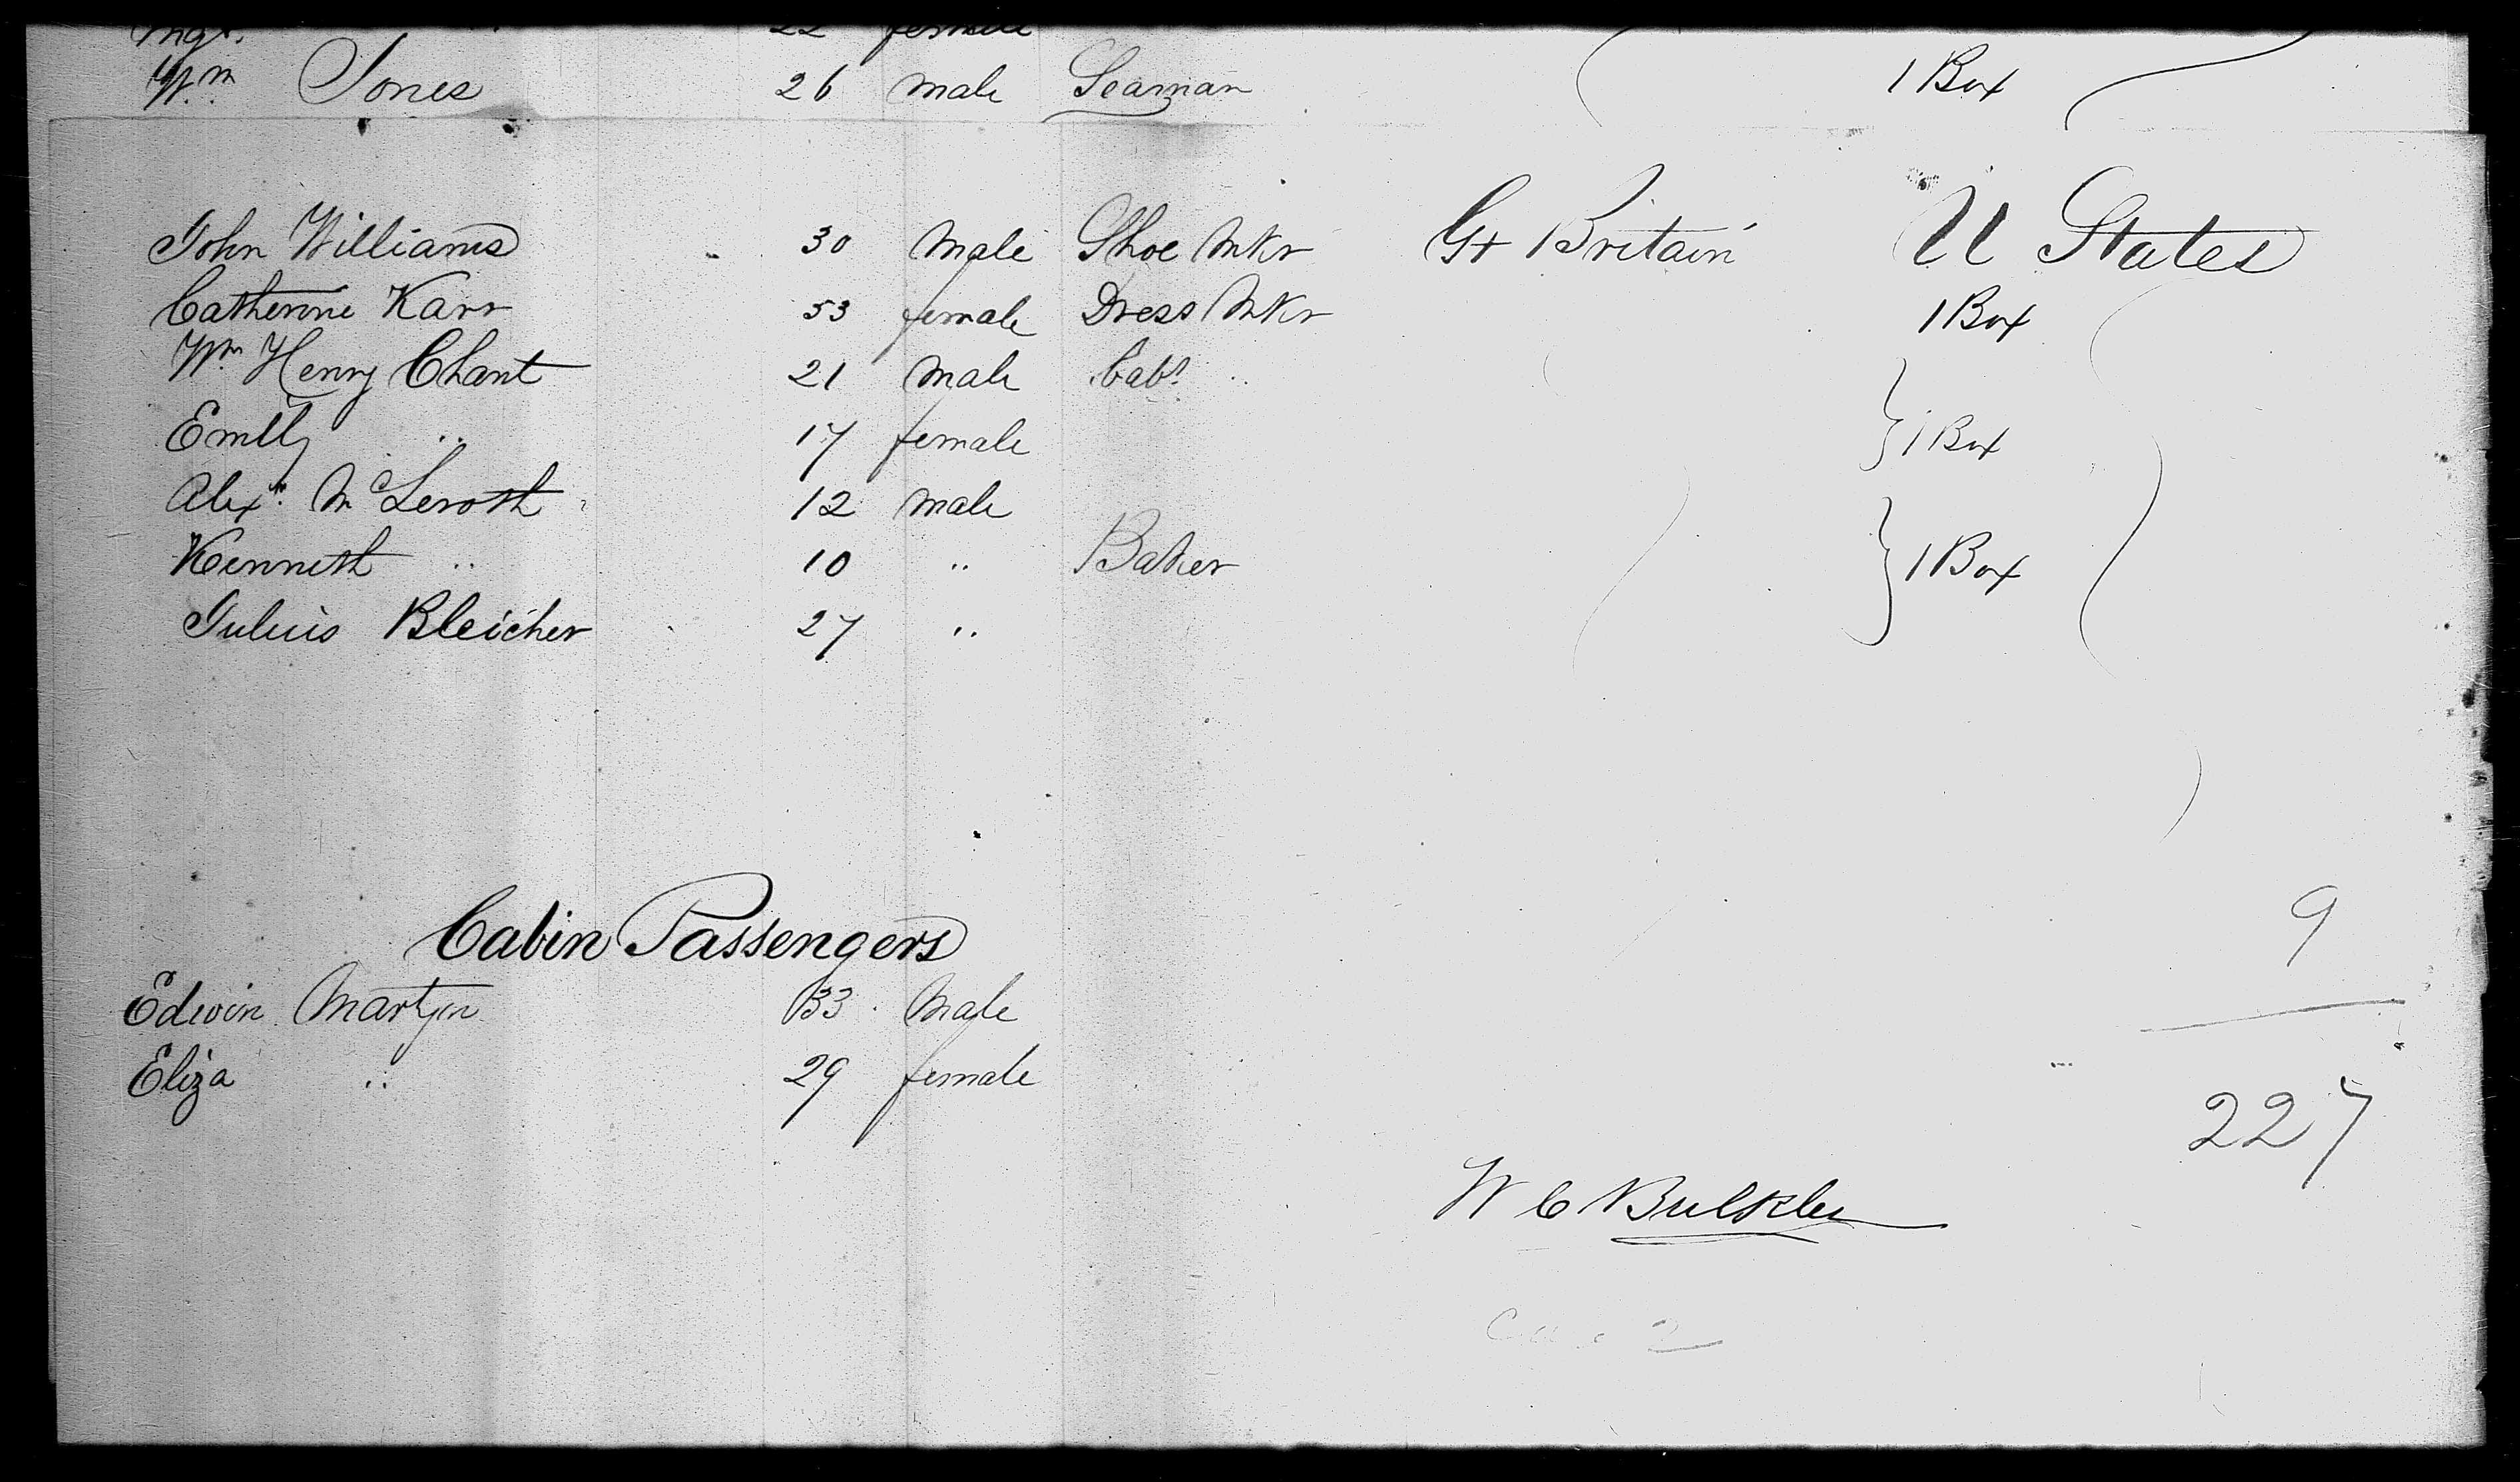 22 female
Wm Jones 26 male Seaman 1 Box
John Williams 30 Male Shoe Mkr Gt Britain U States
Catherine Karr 53 female Dress Mkr 1 Box
Wm Henry Chant 21 Male
Emily " 17 female 1 Box
Alexr. McLerosh 12 male
Kenneth " 10 " Baker 1 Box
Julius Bleicher 27 "
9
Cabin Passengers
Edwin Martyn 33 Male
Eliza " 29 female
227
W C Bulkley